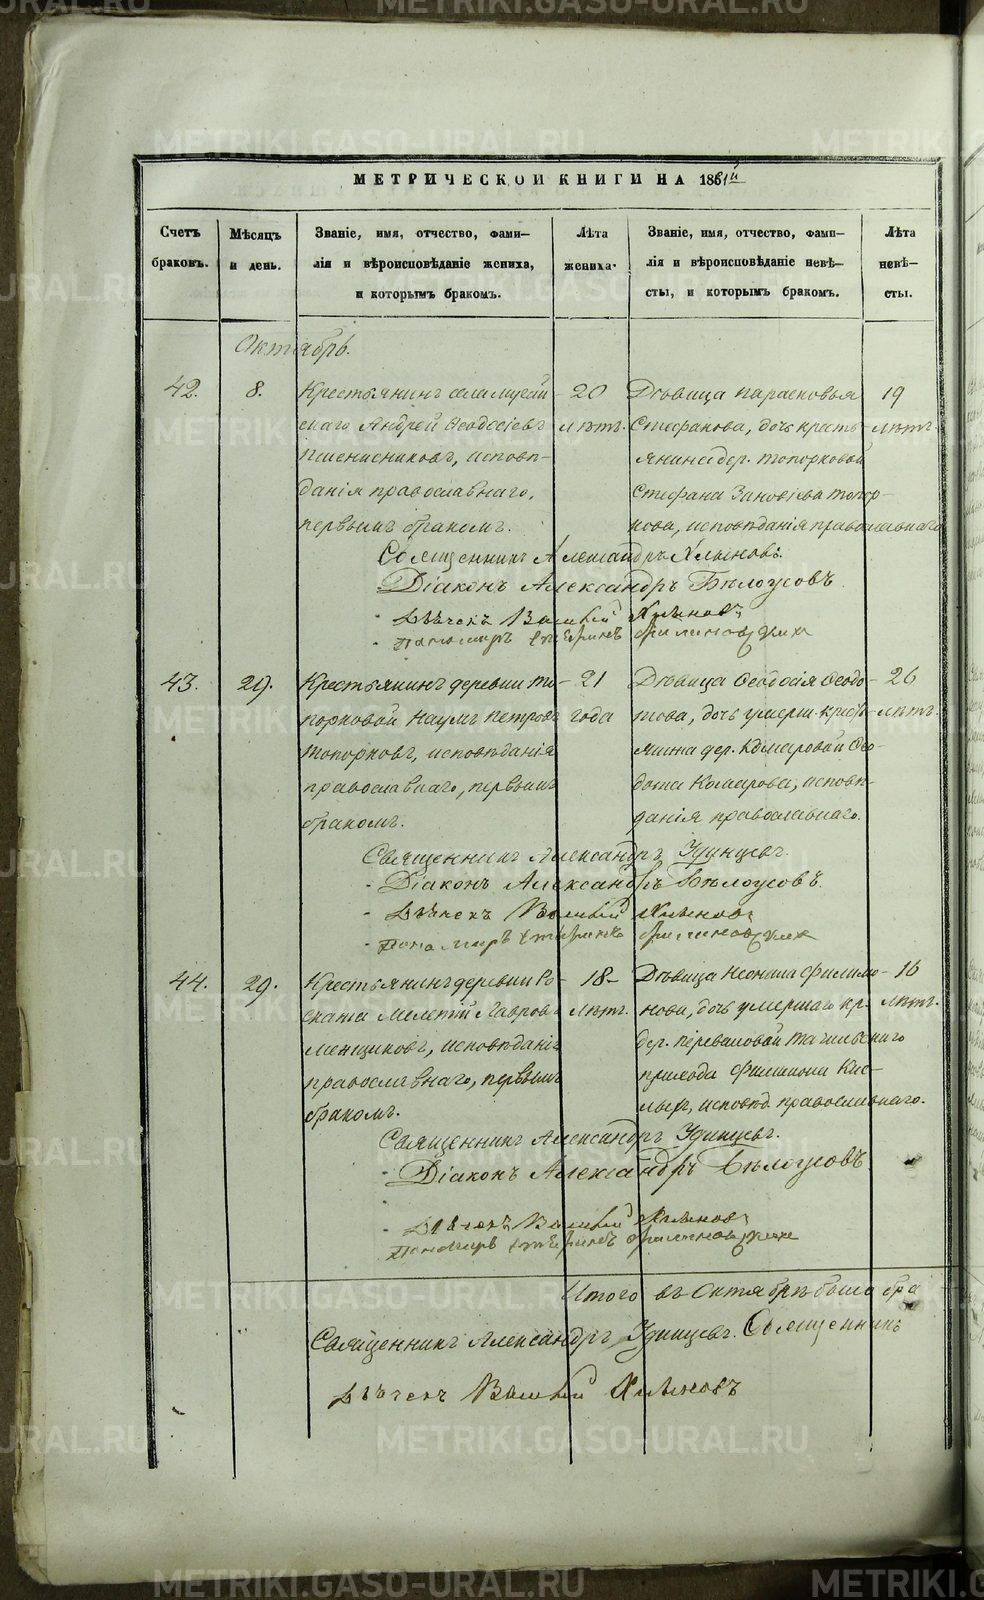 МЕТРИЧЕСКОЙ КНИГИ НА 1861й
Счетъ браковъ.
Мѣсяцъ и день.
Званіе, имя, отчество, фами-
лія и вѣроисповѣданіе жениха,
и которымъ бракомъ.
Лѣта жениха.
Званіе, имя, отчество, фами-
лія и вѣроисповѣданіе невѣ-
сты, и которымъ бракомъ.
Лѣта невѣ-
сты.
Октябрь.
42.
8.
Крестьянинъ села
скаго Андрей Ѳеодосіевъ
Пшенисниковъ, исповѣ-
данія православнаго,
первымъ бракомъ.
20
лѣтъ.
Дѣвица Парасковья
Стефанова, дочь кресть-
янина дер. Топорковой
Стефана Зиновіева Топор-
кова, исповѣданія православнаго
19
лѣтъ.
Священникъ Александръ Хлыновъ.
Діаконъ Александръ Бѣлоусовъ.
Дьячекъ Хлыновъ
Пономарь
43.
29.
Крестьянинъ деревни То-
порковой Наумъ Петровъ
Топорковъ, исповѣданія
православнаго, первымъ
бракомъ.
21
года
Дѣвица Ѳеодосія Ѳеодо-
това, дочь умерш. кресть-
янина дер. Комаровой Ѳео-
дота Комарова, исповѣ-
данія православнаго.
26
лѣтъ.
Священникъ Александръ Удинцевъ.
Діаконъ Александръ Бѣлоусовъ.
Дьячекъ Хлыновъ
Пономарь
44.
29.
Крестьянинъ деревни Ро-
скати Мелетій Лавровъ
Менщиковъ, исповѣданія
православнаго, первымъ
бракомъ.
18
лѣтъ.
Дѣвица Неонила Филимо-
нова, дочь умершаго кр.
дер. Переваловой Тагильскаго
прихода Филимона Кис-
исповѣд. православнаго.
16
лѣтъ.
Священникъ Александръ Удинцевъ.
Діаконъ Александръ Бѣлоусовъ
Дьячекъ Хлыновъ
Пономарь
Итого въ Октябрѣ было бра
Священникъ Александръ Удинцевъ. Священникъ
Дьячекъ Хлыновъ
METRIKI.GASO-URAL.RU